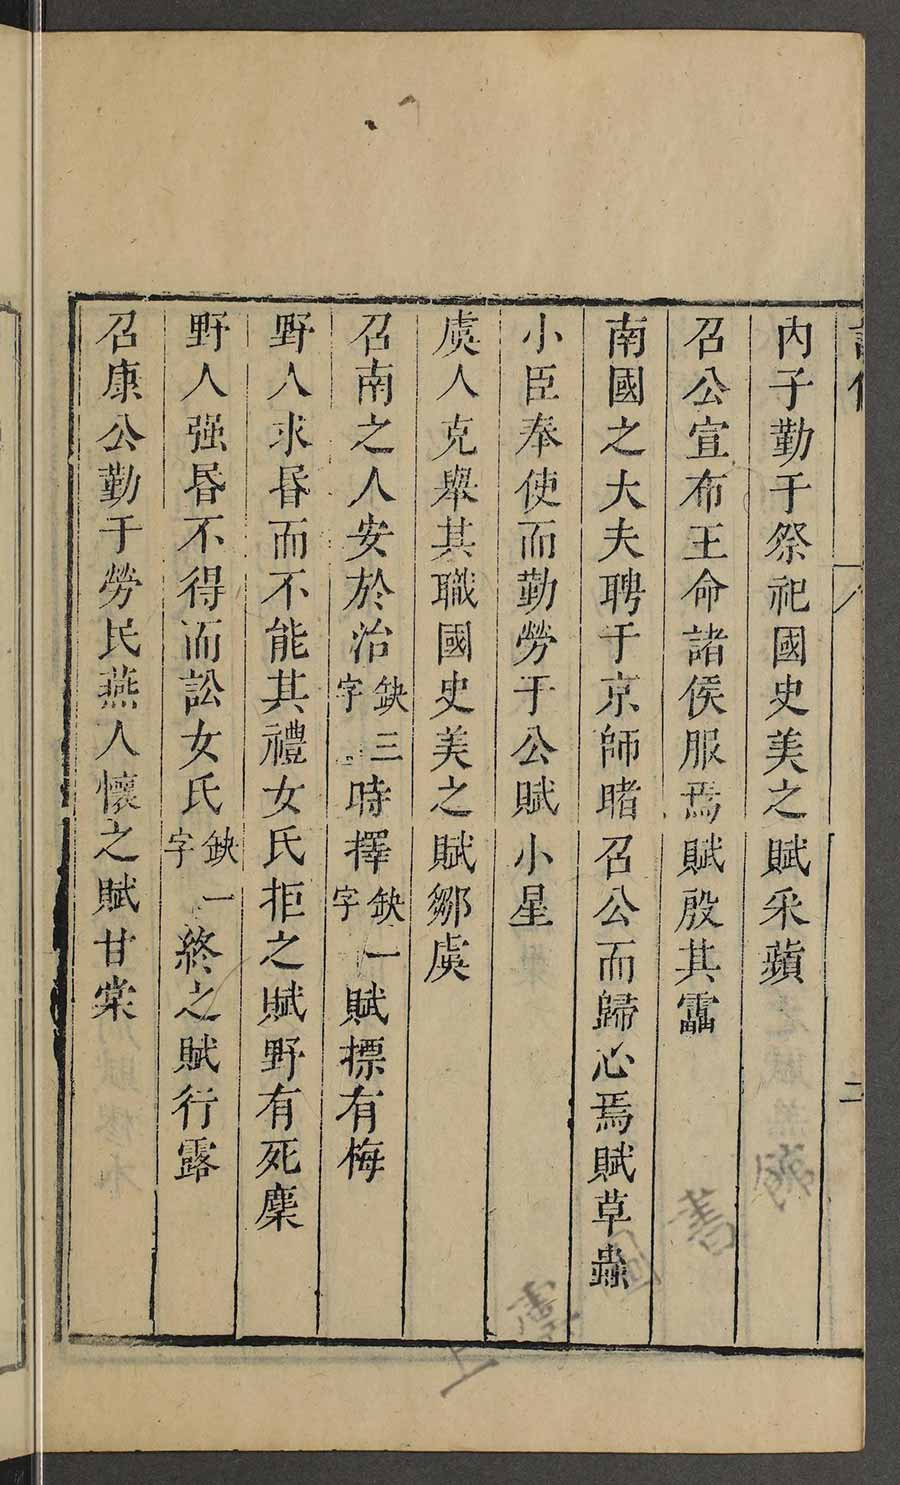 二
內子勤于祭祀國史美之賦采蘋
召公宣布王命諸侯服焉賦殷其靁
南國之大夫聘于京師睹召公而歸心焉賦草蟲
小臣奉使而勤勞于公賦小星
虞人克舉其職國史美之賦鄒虞
召南之人安於治缺三字時擇缺一字賦摽有梅
野人求昏而不能其禮女氏拒之賦野有死麇
野人强昏不得而訟女氏缺一字終之賦行露
召康公勤于勞民燕人懷之賦甘棠